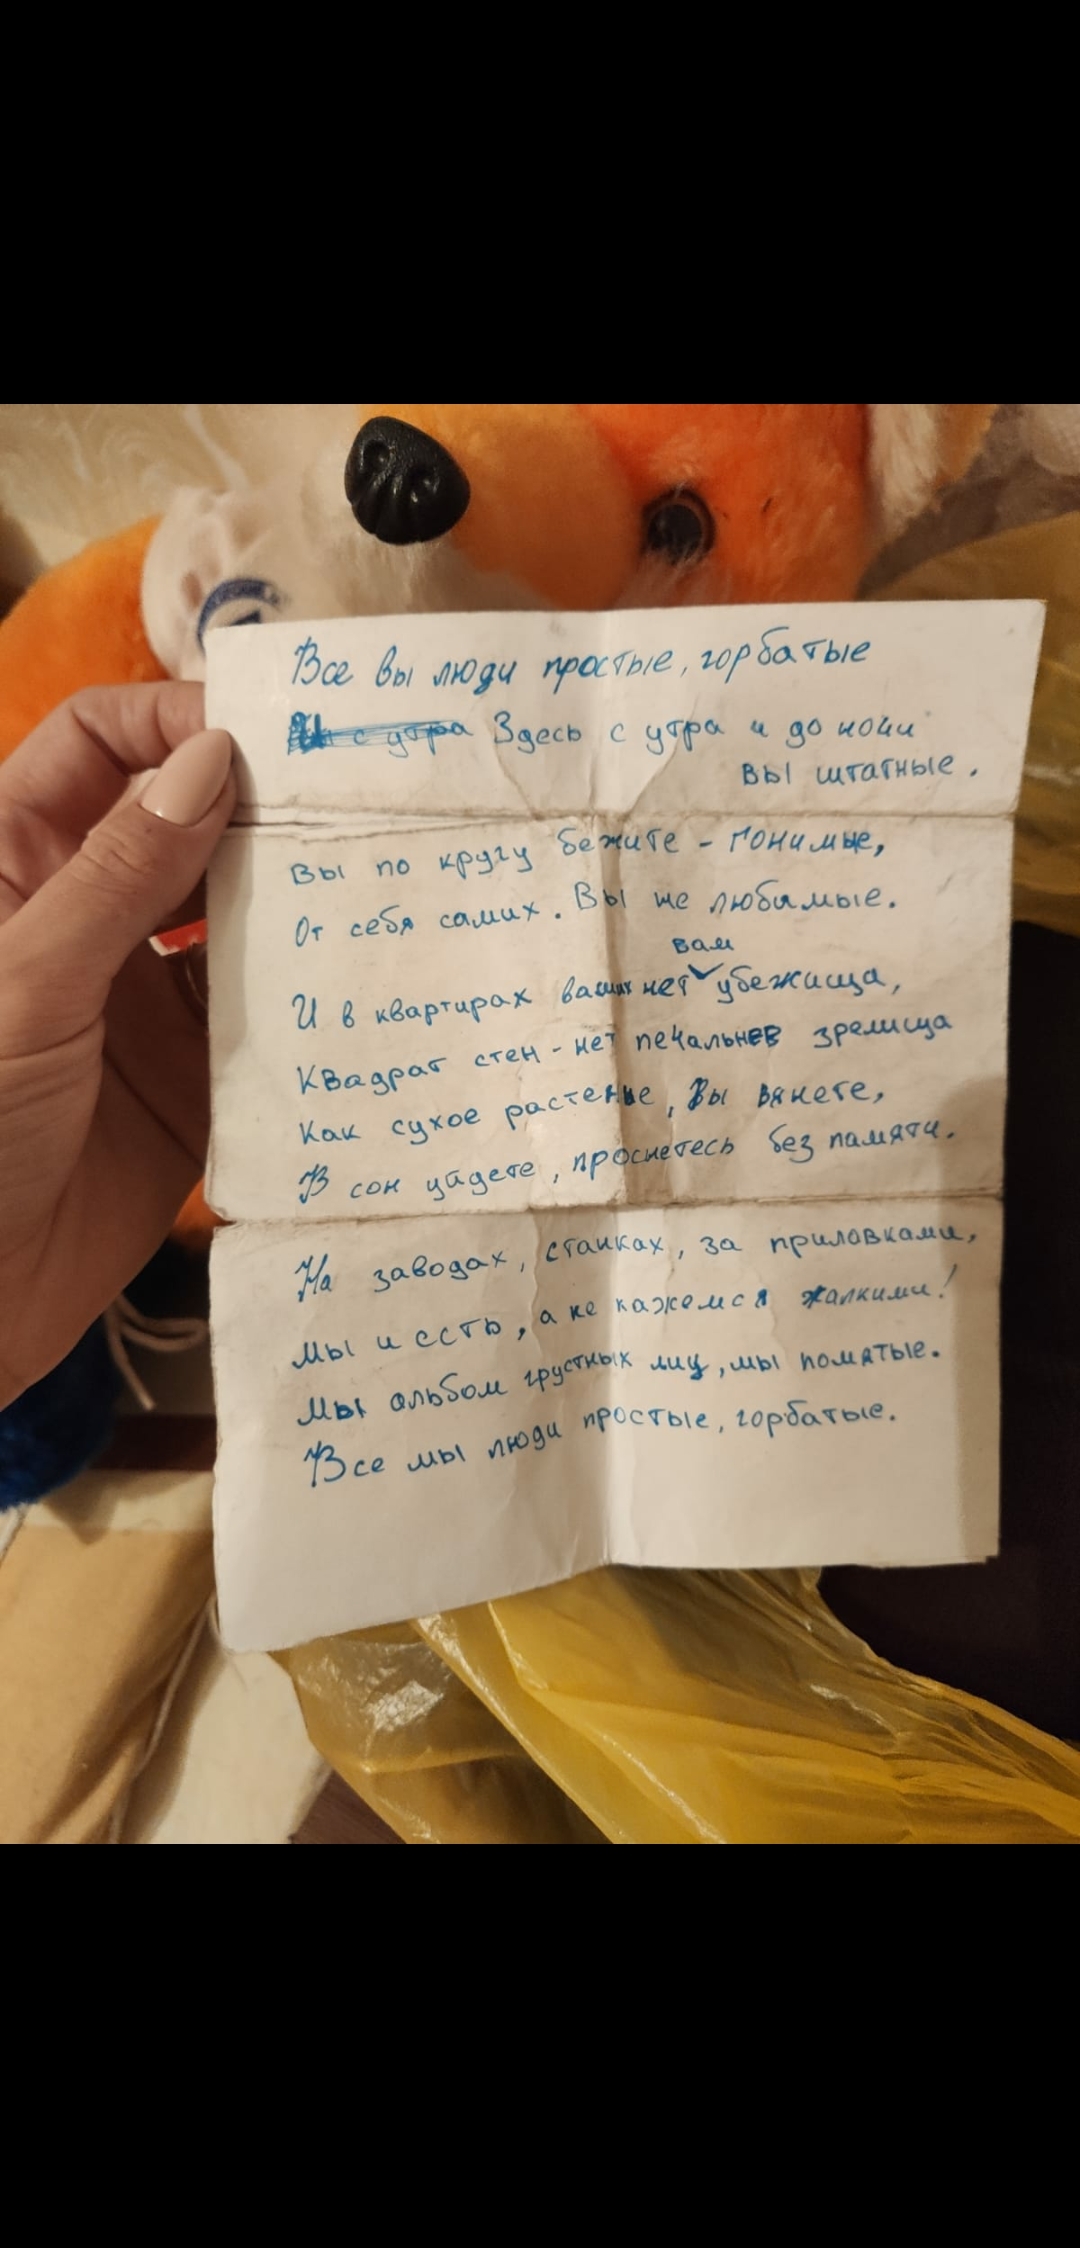 Все вы люди простые, горбатые
И с утра Здесь с утра и до ночи
вы штатные.
Вы по кругу бежите - гонимые,
От себя самих. Вы не любимые.
вам
И в квартирах ваших нет убежища,
Квадрат стен - нет печальнев зрелища
Как сухое растенье, Вы вянете,
В сон уйдете, проснетесь без памяти.
На заводах, станках, за прилавками,
Мы и есть, а не кажемся жалкими!
Мы альбом грустных лиц, мы помятые.
Все мы люди простые, горбатые.